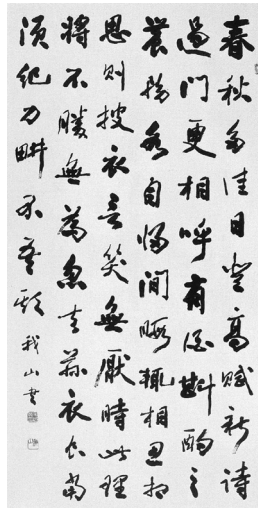 春秋多佳日登高賦新詩
過門更相呼有酒斟酌之
農務各自歸間暇輒相思相
思則披衣言笑無厭時此理
將不勝無為忽去茲衣食當
須紀力畊不吾欺 我山書